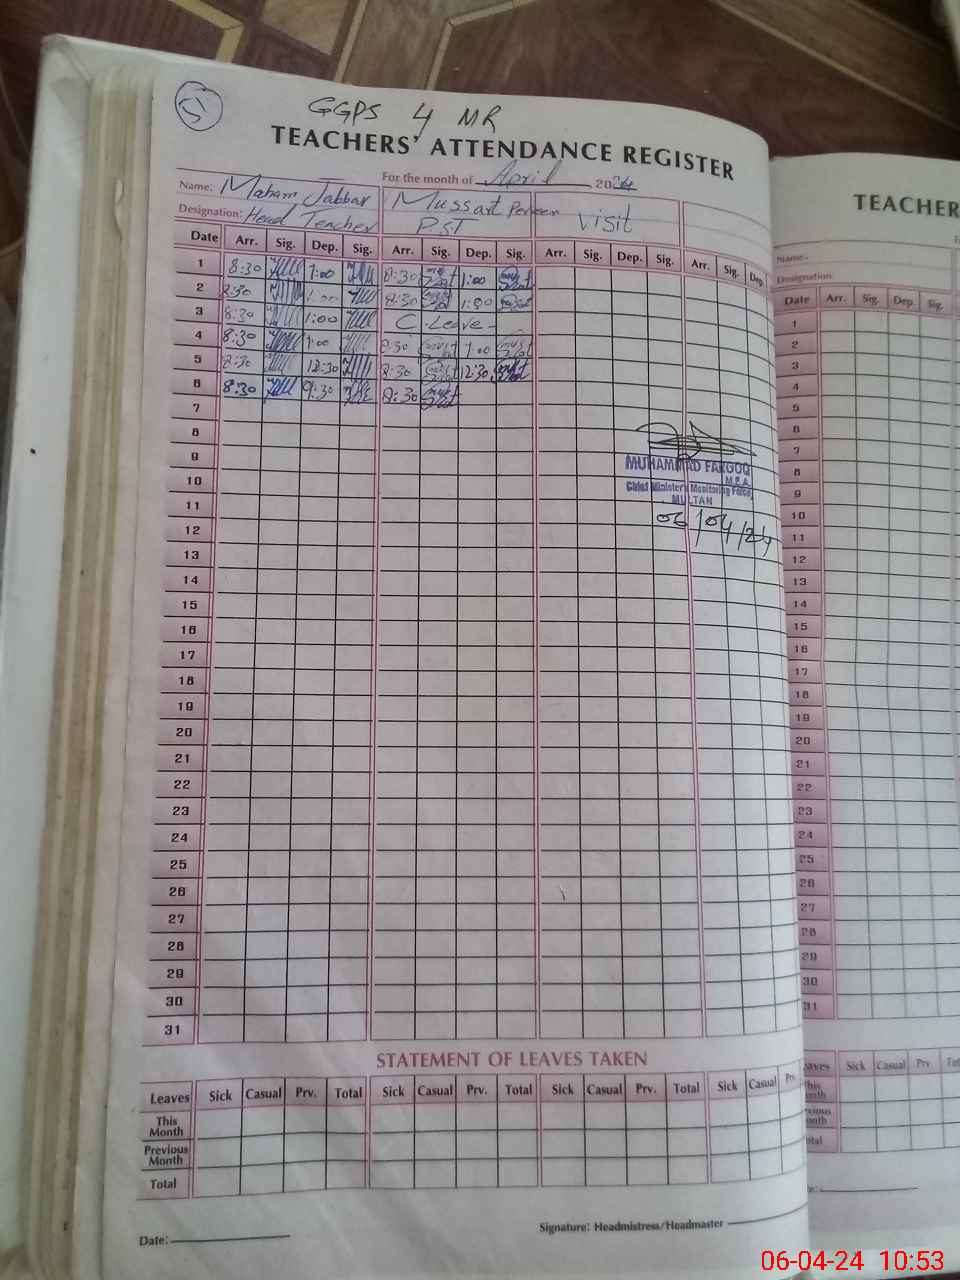 5
GGPS 4 MR
TEACHERS' ATTENDANCE REGISTER
For the month of April 2024
Name: Maham Jabbar Mussart Perveen visit
Designation: Head Teacher P.S.T
Date Arr. Sig. Dep. Sig. Arr. Sig. Dep. Sig. Arr. Sig. Dep. Sig. Arr. Sig. Dep.
1 8:30 1:00 8:30 1:00
2 8:30 1:00 8:30 1:00
3 8:30 1:00 C. Leave
4 8:30 1:00 8:30 1:00
5 8:30 12:30 8:30 12:30
6 8:30 9:30 8:30
7
8
9
10
11
12
13
14
15
16
17
18
19
20
21
22
23
24
25
26
27
28
29
30
31
MUHAMMAD FAROOQ
M.E.A.
Chief Minister's Monitoring Force
MULTAN
06/04/24
STATEMENT OF LEAVES TAKEN
Leaves Sick Casual Prv. Total Sick Casual Prv. Total Sick Casual Prv. Total Sick Casual Prv.
This Month
Previous Month
Total
Date: Signature: Headmistress/Headmaster
TEACHER
Name:
Designation:
Date Arr. Sig. Dep. Sig.
1
2
3
4
5
6
7
8
9
10
11
12
13
14
15
16
17
18
19
20
21
22
23
24
25
26
27
28
29
30
31
Sick Casual Prv.
06-04-24 10:53